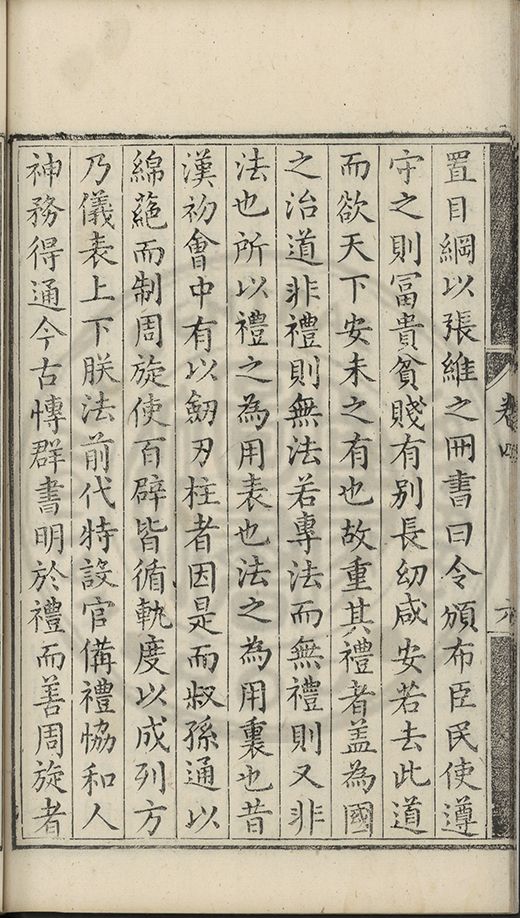 置目綱以張維之冊書曰令頒布臣民使遵
守之則冨貴貧賤有别長幼咸安若去此道
而欲天下安未之有也故重其禮者盖為國
之治道非禮則無法若專法而無禮則又非
法也所以禮之為用表也法之為用裏也昔
漢初會中有以劒刃柱者因是而叔孫通以
綿蕝而制周旋使百辟皆循軌度以成列方
乃儀表上下朕法前代特設官俻禮恊和人
神務得通今古愽群書明於禮而善周旋者
卷四
六